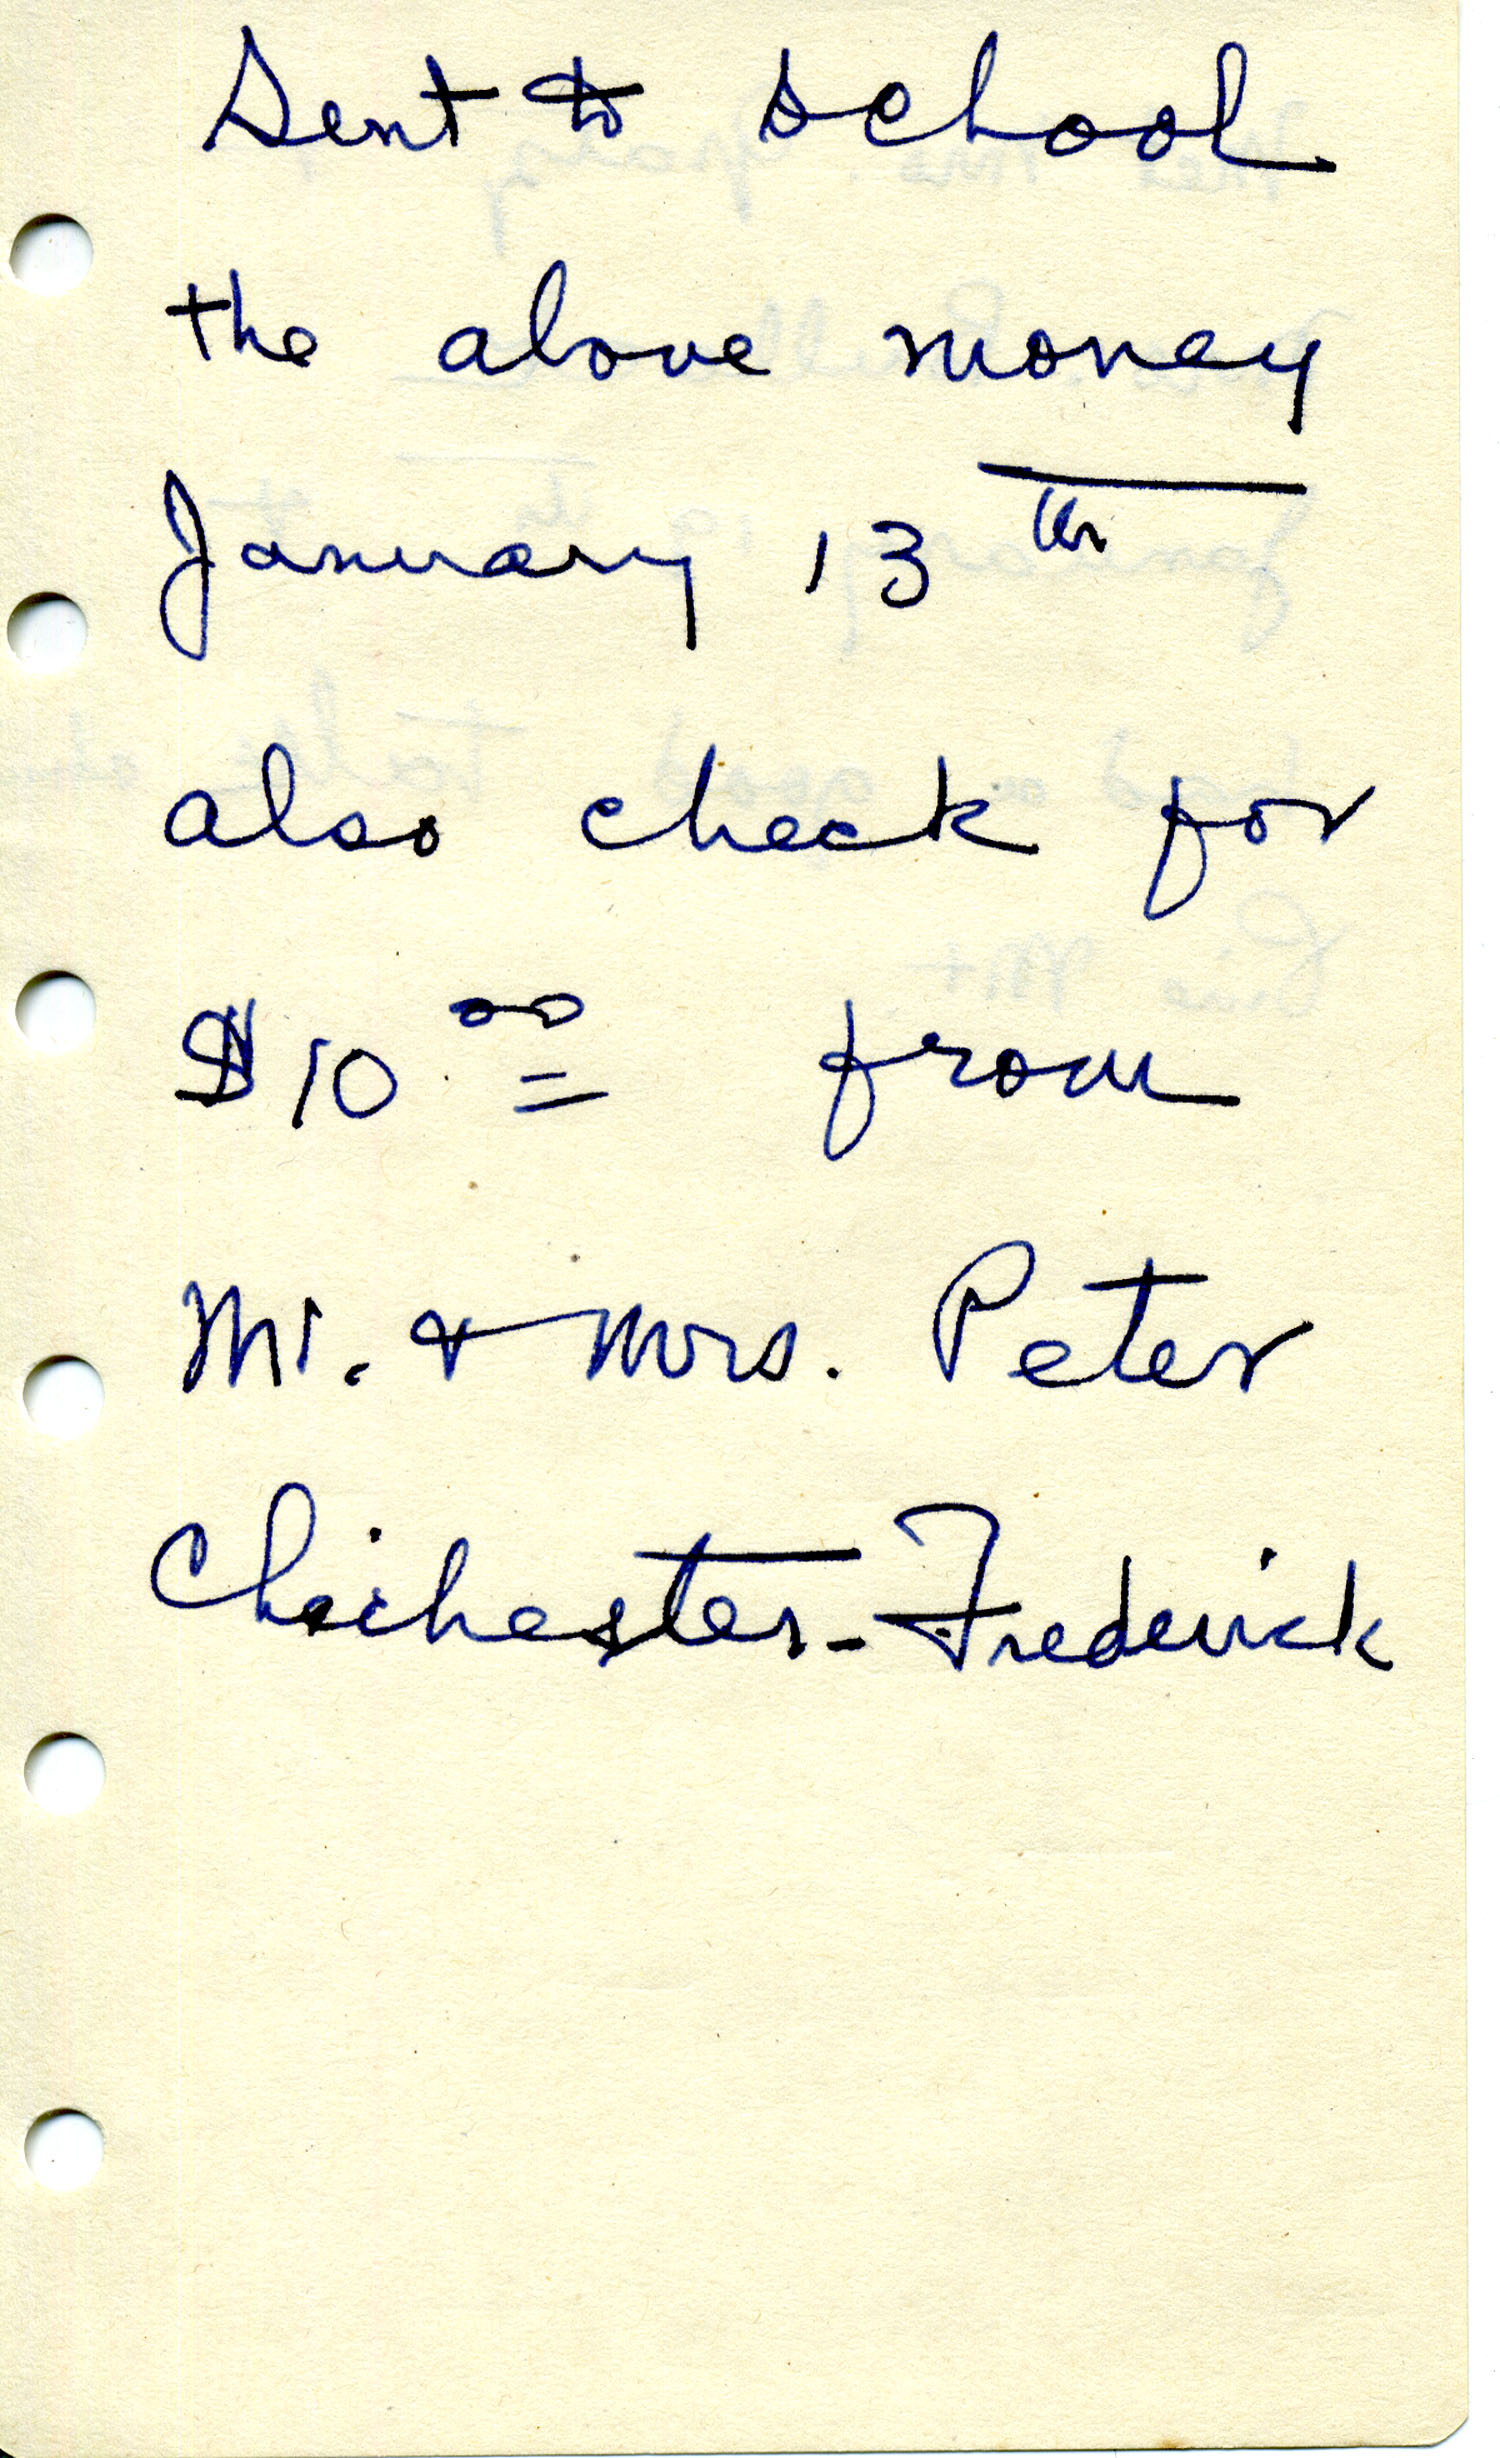 Sent to school
the above money
January 13th
also check for
$10.00 from
Mr. & Mrs. Peter
Chichester-Frederick